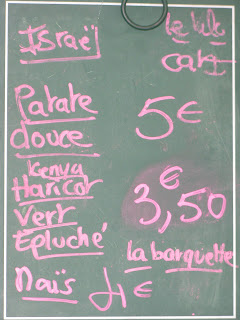 Israël le kilo
cat I
Patate 5€
douce
Kenya
Haricot 3,50 €
Vert
Epluché la barquette
Maïs 4€